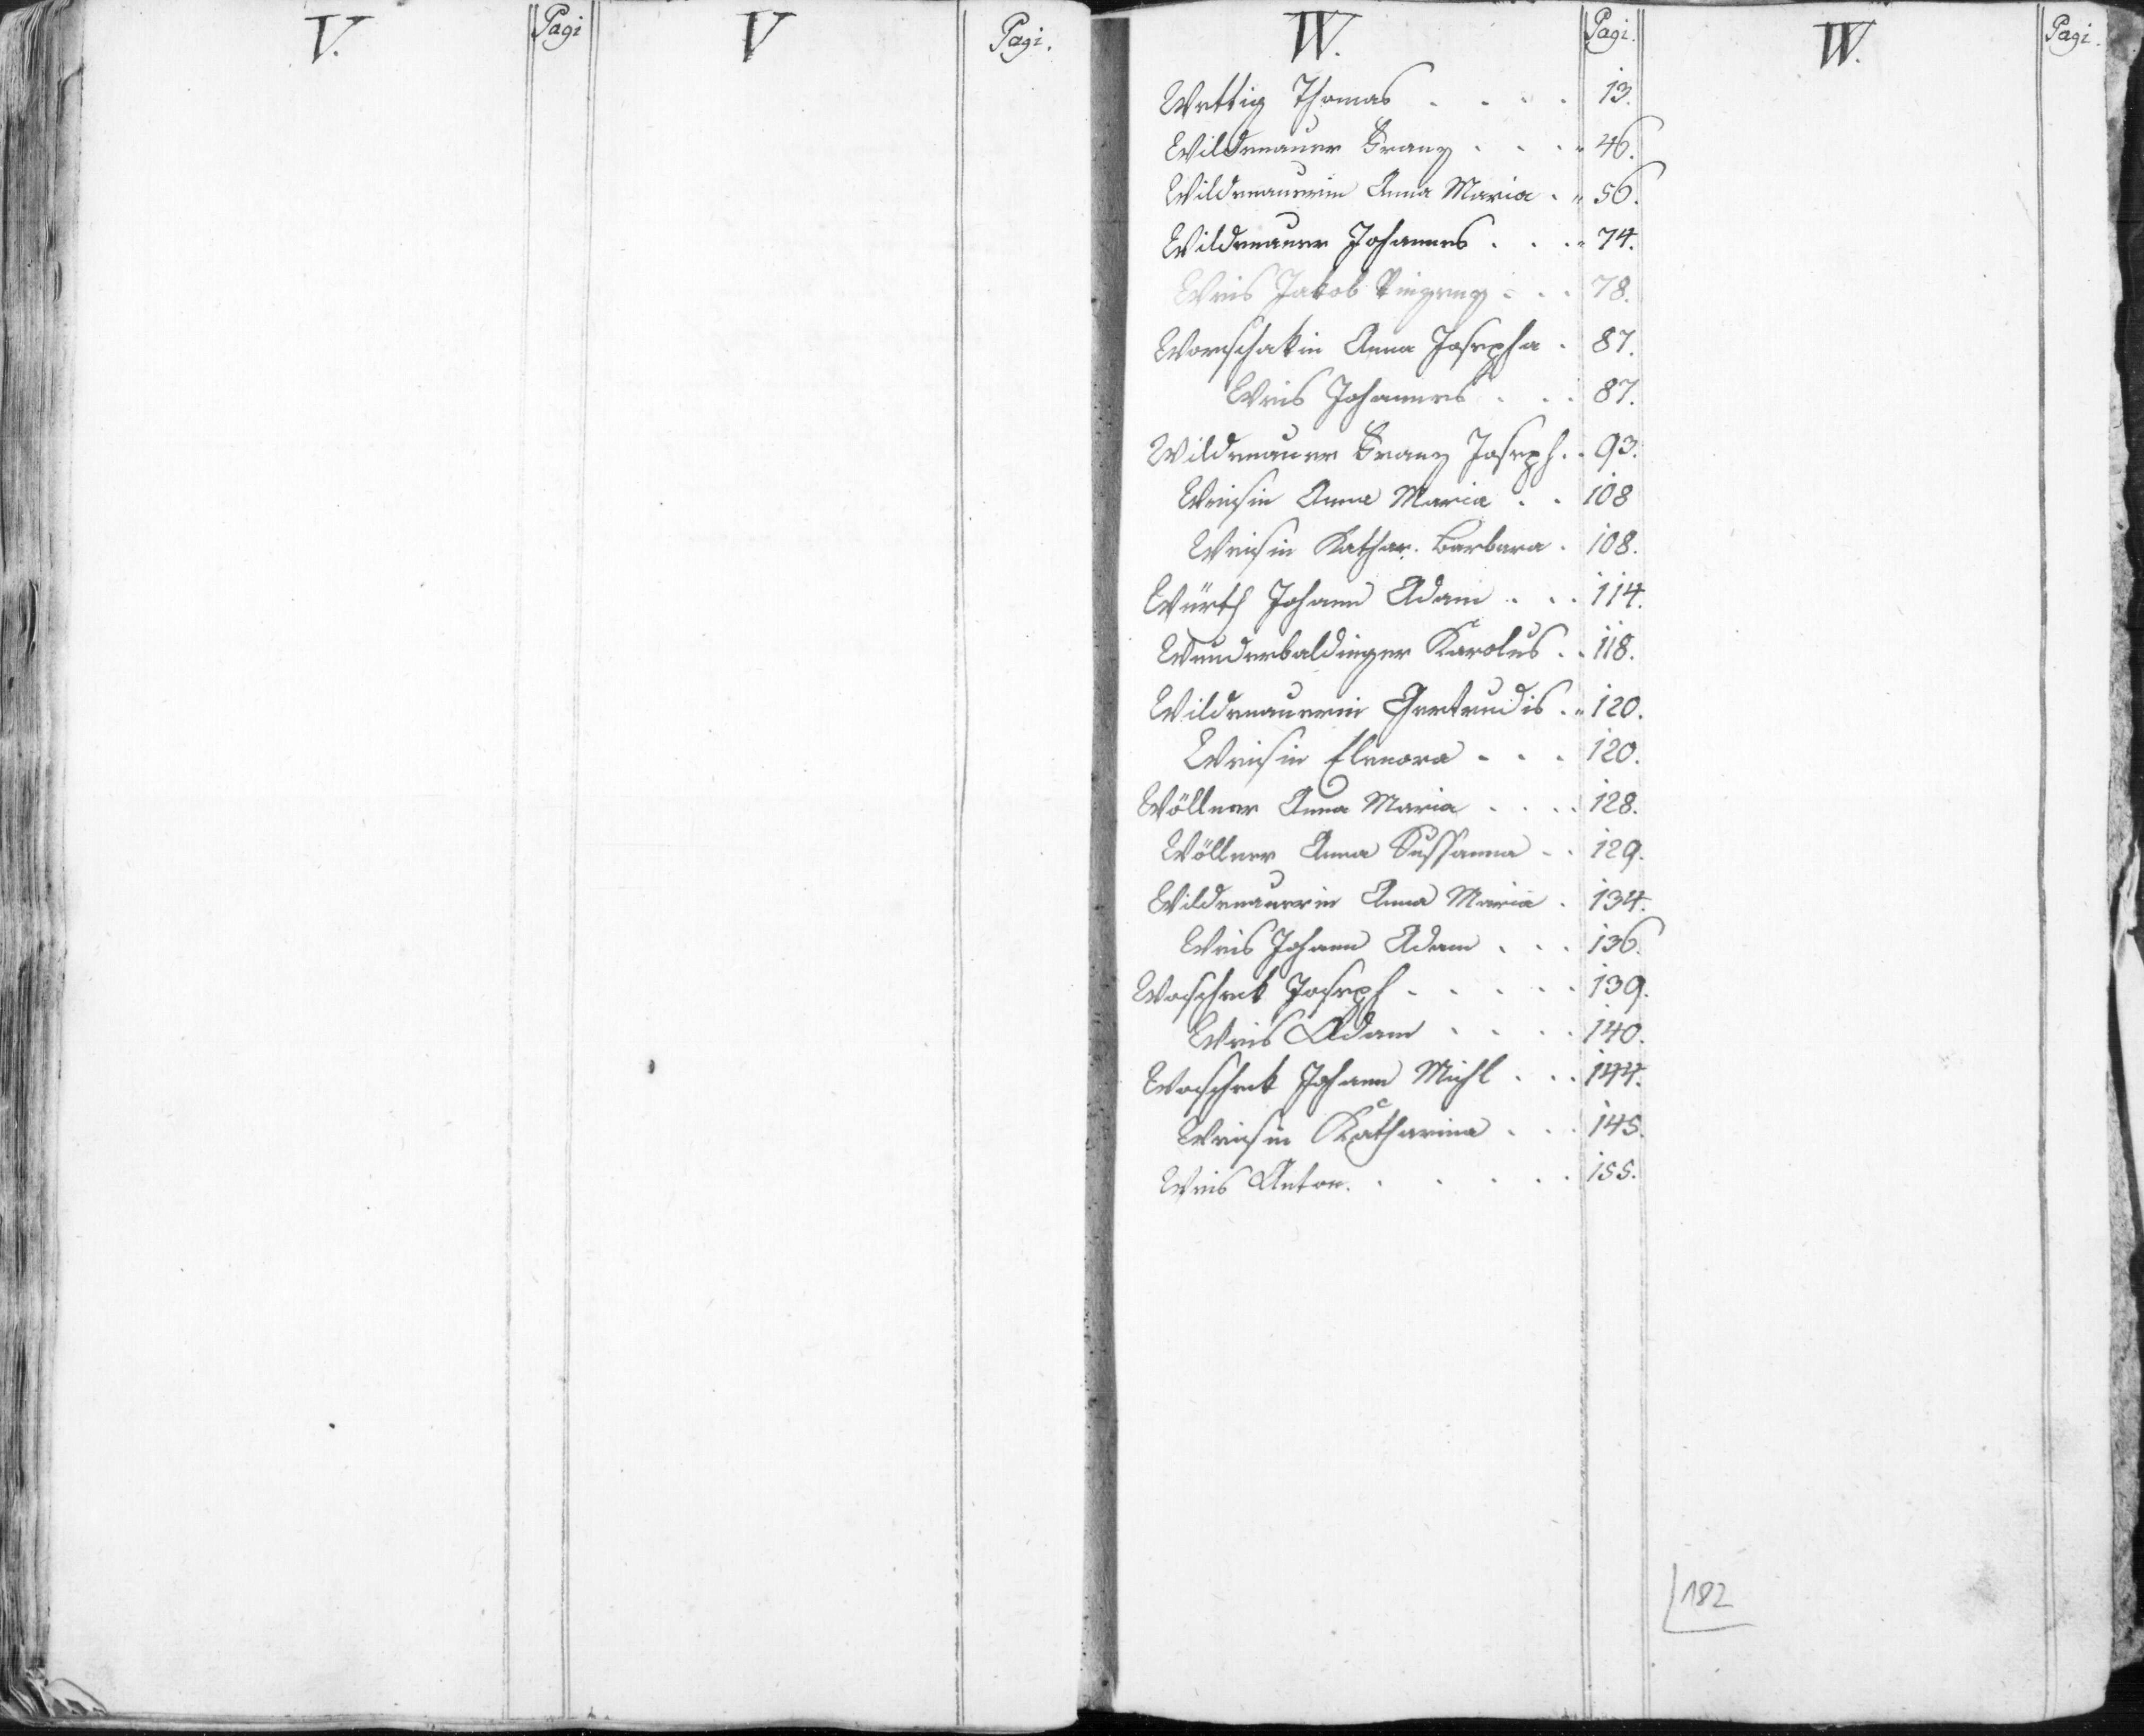 V.
Pagi
V
Pagi.
W.
Pagi.
W.
Pagi.
Wettig Thomas . . . . 13.
Wildenauer Franz . . . " 46.
Wildenauerin Anna Maria . " 56.
Wildenauer Johannes . . . " 74.
Weis Jakob Vinzenz . . . 78.
Worschakin Anna Josepha . 87.
Weis Johannes . . . 87.
Wildenauer Franz Joseph . . 93.
Weisin Anna Maria . . 108
Weisin Kathar. Barbara . 108.
Würth Johann Adam . . . 114.
Wunderbaldinger Karolus . . 118.
Wildenauerin Gertrudis . " 120.
Weisin Elenora . . . 120.
Wöllner Anna Maria . . . . 128.
Wöllner Anna Sussanna . . 129.
Wildenauerin Anna Maria . 134.
Weis Johann Adam . . . 136.
Woschek Joseph . . . . . 139.
Weis Adam . . . . 140.
Woschek Johann Michl . . . 144.
Weisin Katharina . . . 145.
Weis Anton. . . . . . 155.
182